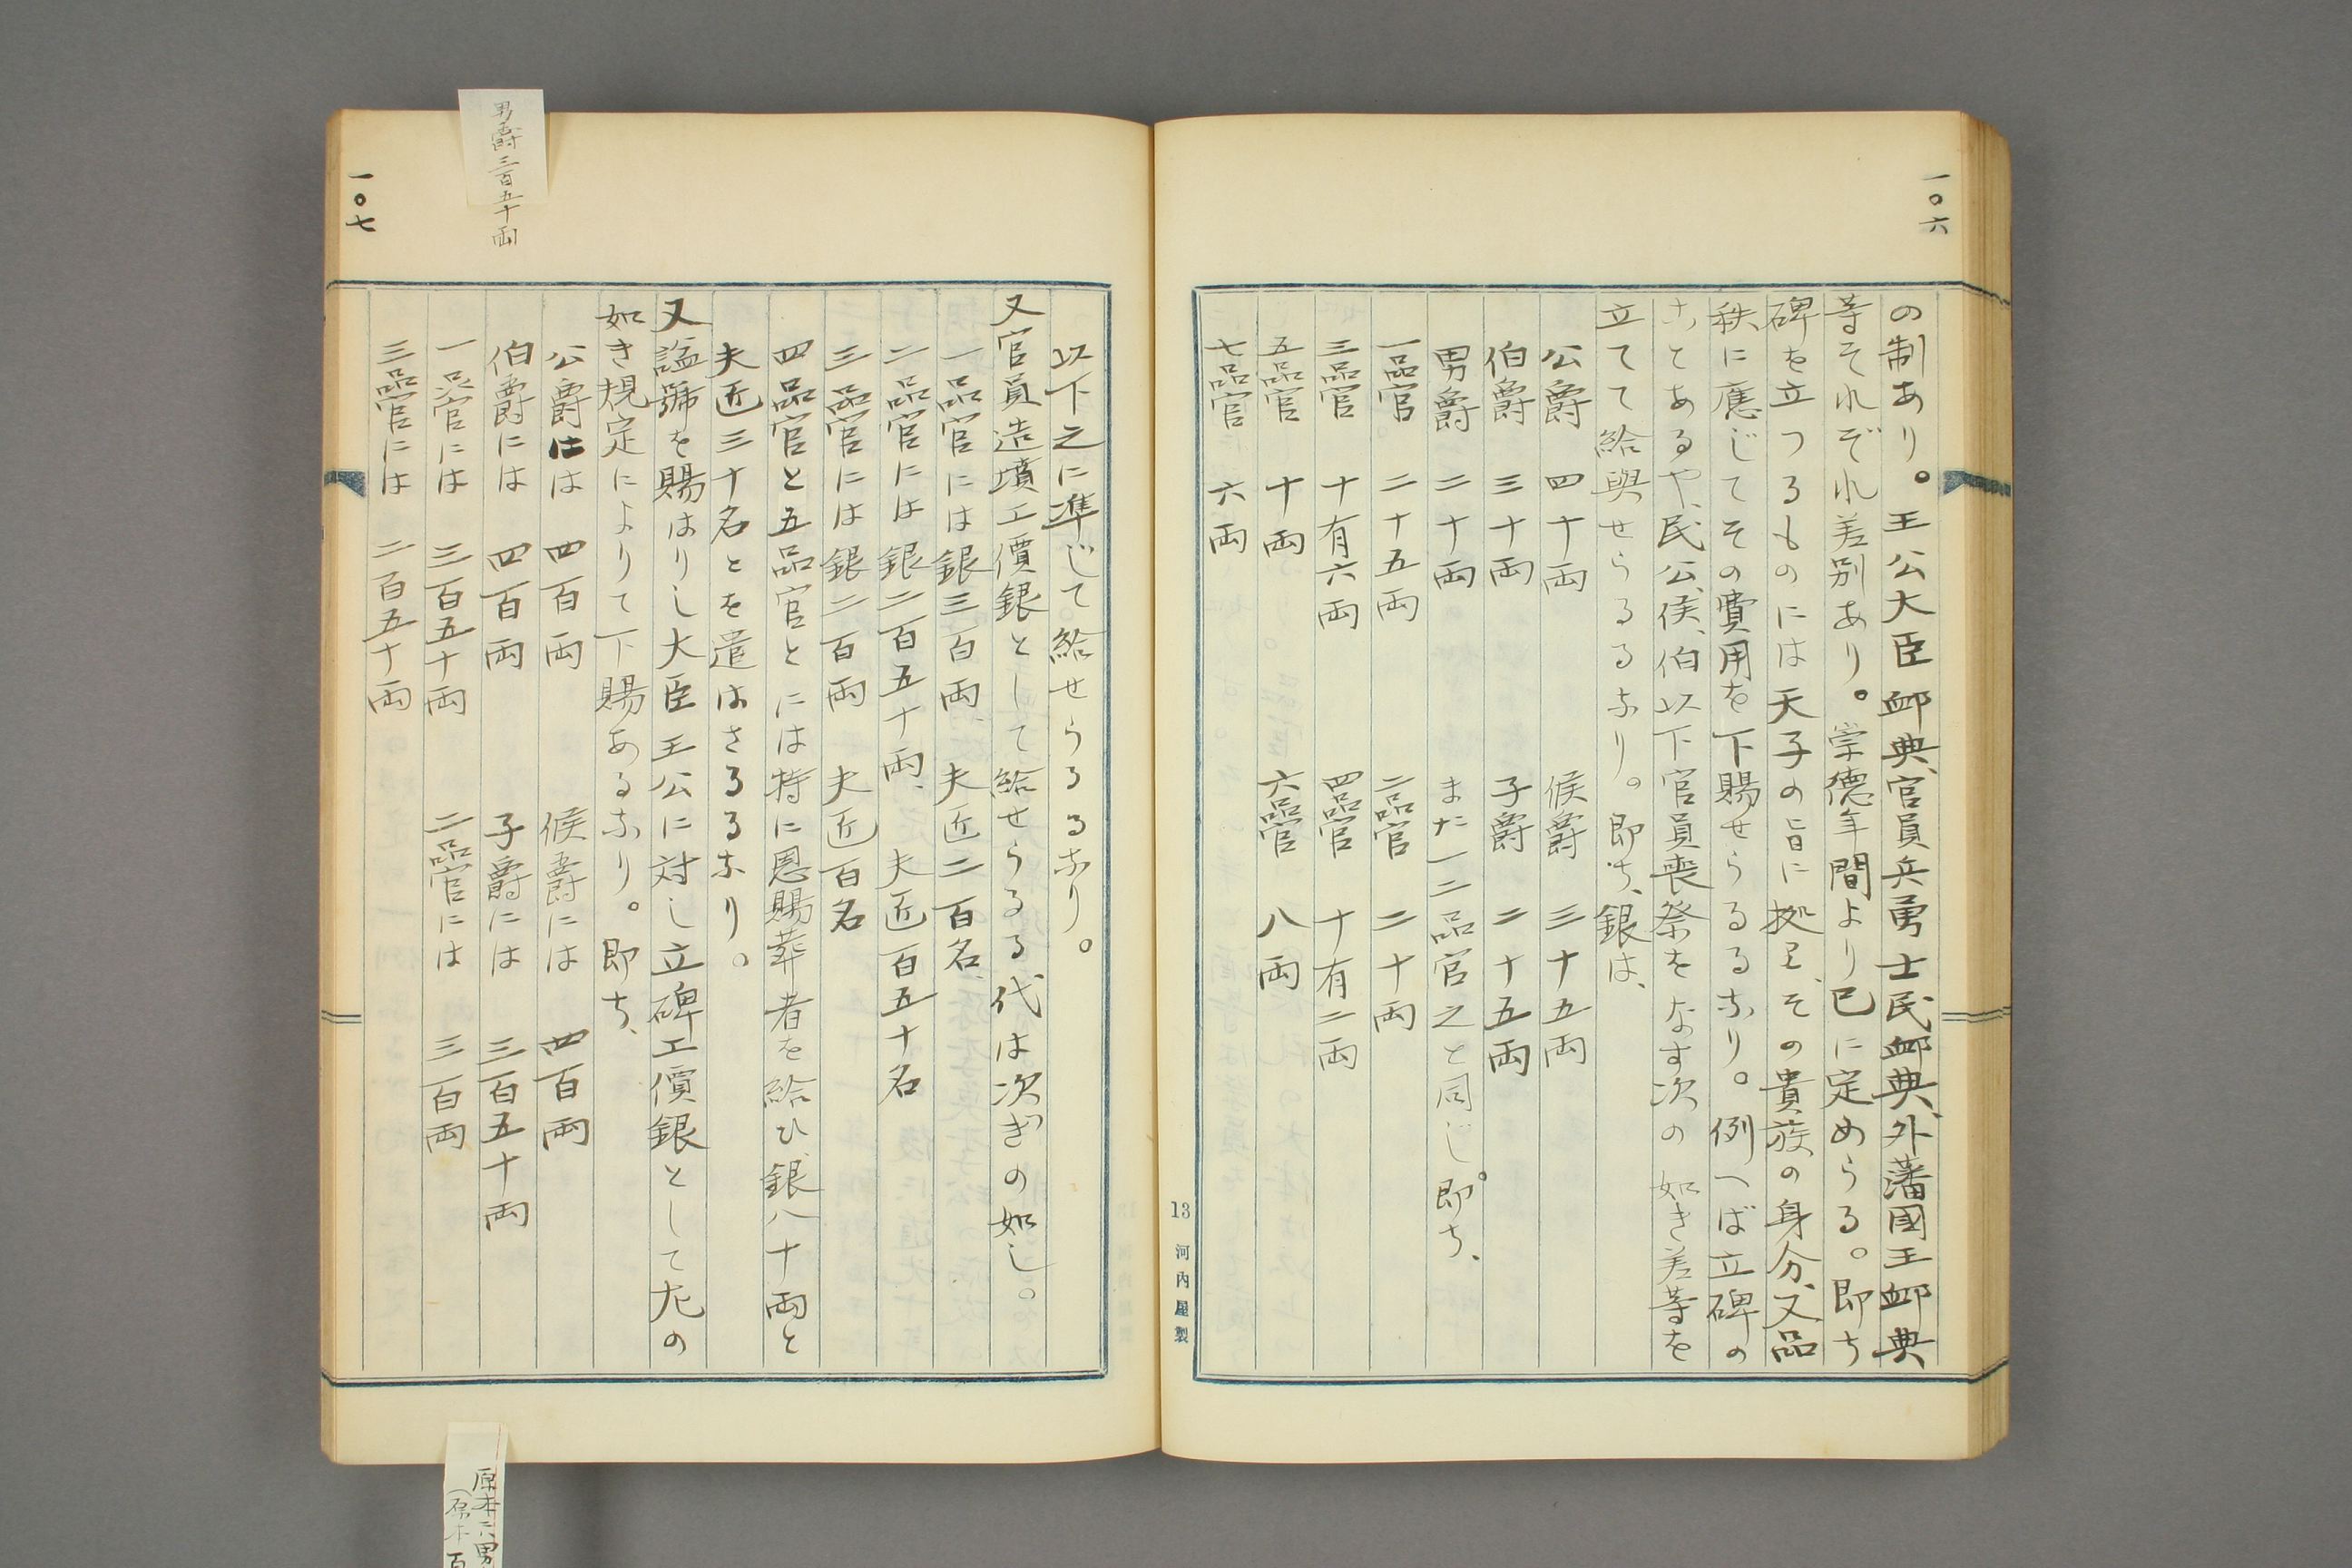 一〇六
の制あり。王公大臣卹典、官員兵勇士民卹典、外藩國王卹典
等それぞれ差別あり。崇德年間より已に定めらる。即ち
碑を立つるものには天子の旨に拠り、その貴族の身分、又品
秩に應じてその費用を下賜せらるるなり。例へば立碑の
ことあるや、民公、侯、伯以下官員喪祭をなす次の如き差等を
立てて給與せらるるなり。即ち、銀は、
公爵 四十両 侯爵 三十五両
伯爵 三十両 子爵 二十五両
男爵 二十両 また一二品官之と同じ。即ち、
一品官 二十五両 二品官 二十両
三品官 十有六両 四品官 十有二両
五品官 十両 六品官 八両
七品官 六両
13 河内屋製
一〇七
以下之に準じて給せらるるなり。
又官員造墳工價銀として給せらるる代は次ぎの如し。
一品官には銀三百両、夫匠二百名、
二品官には銀二百五十両、夫匠百五十名
三品官には銀二百両 夫匠百名
四品官と五品官とには特に恩賜葬者を給ひ、銀八十両と
夫匠三十名とを遣はさるるなり。
又諡號を賜はりし大臣王公に対し立碑工價銀として左の
如き規定によりて下賜あるなり。即ち、
公爵には 四百両 侯爵には 四百両
伯爵には 四百両 子爵には 三百五十両
男爵三百五十両
一品官には 三百五十両 二品官には 三百両
三品官には 二百五十両
原本ニハ男
(原本 百